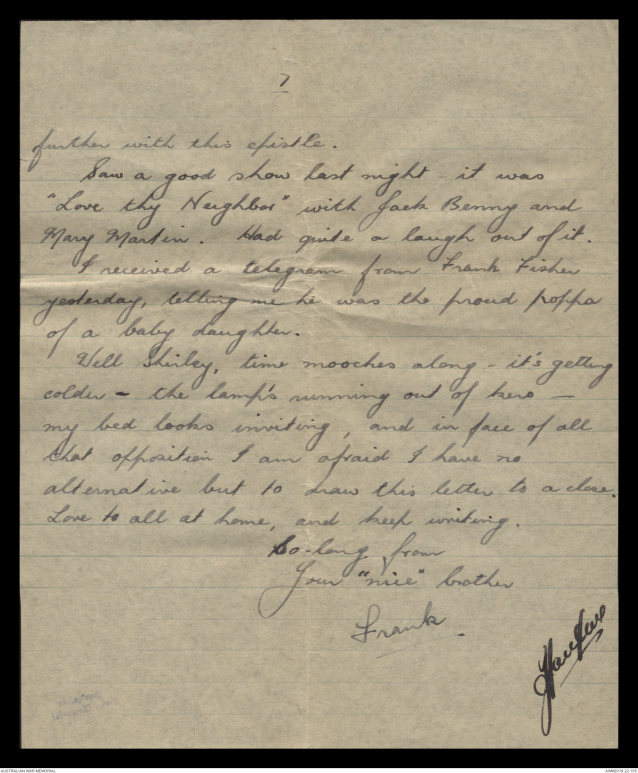 7
further with this epistle.
Saw a good show last night - it was
"Love thy Neighbor" with Jack Benny and
Mary Martin. Had quite a laugh out of it.
I received a telegram from Frank Fisher
yesterday, telling me he was the proud poppa
of a baby daughter.
Well Shirley, time mooches along - it's getting
colder - the lamp's running out of kero -
my bed looks inviting, and in face of all
that opposition I am afraid I have no
alternative but to draw this letter to a close.
Love to all at home, and keep writing.
So-long from
Your "nice" brother
Frank.
AUSTRALIAN WAR MEMORIAL